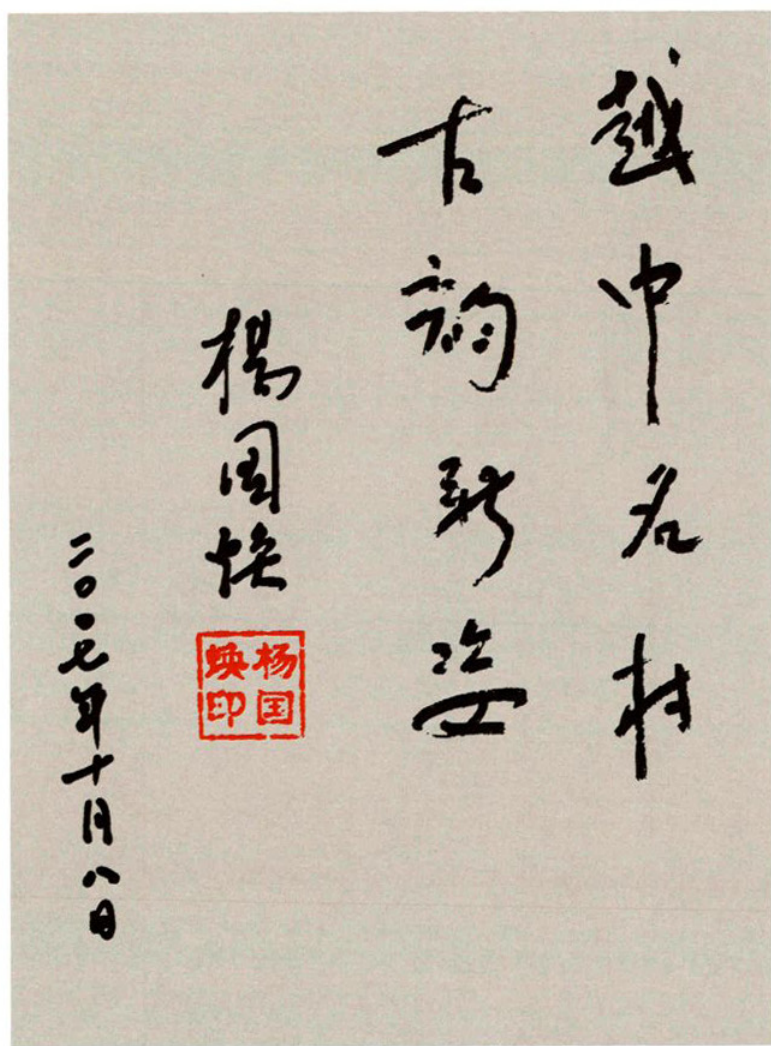 越中名村
古韵新姿
楊国焕
杨国
焕印
二〇一七年十月八日